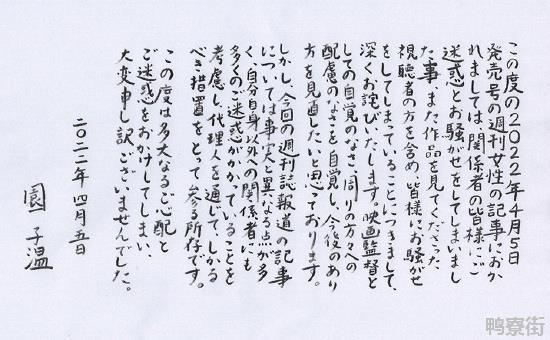 この度の2022年4月5日
発売号の週刊女性の記事におか
れましては関係者の皆様にご
迷惑とお騒がせをしてしまいまし
た事、また作品を見てくださった
視聴者の方を含め、皆様にお騒がせ
をしてしまっていることにつきまして、
深くお詫びいたします。映画監督と
しての自覚のなさ、周りの方々への
配慮のなさを自覚し、今後のあり
方を見直したいと思っております。
しかし、今回の週刊誌報道の記事
については事実と異なる点が多
く、自分自身以外への関係者にも
多くのご迷惑がかかっていることを
考慮し、代理人を通じて、しかる
べき措置をとって参る所存です。
この度は多大なるご心配と
ご迷惑をおかけしてしまい、
大変申し訳ございませんでした。
二〇二二年 四月五日
園 子温
鸭寮街